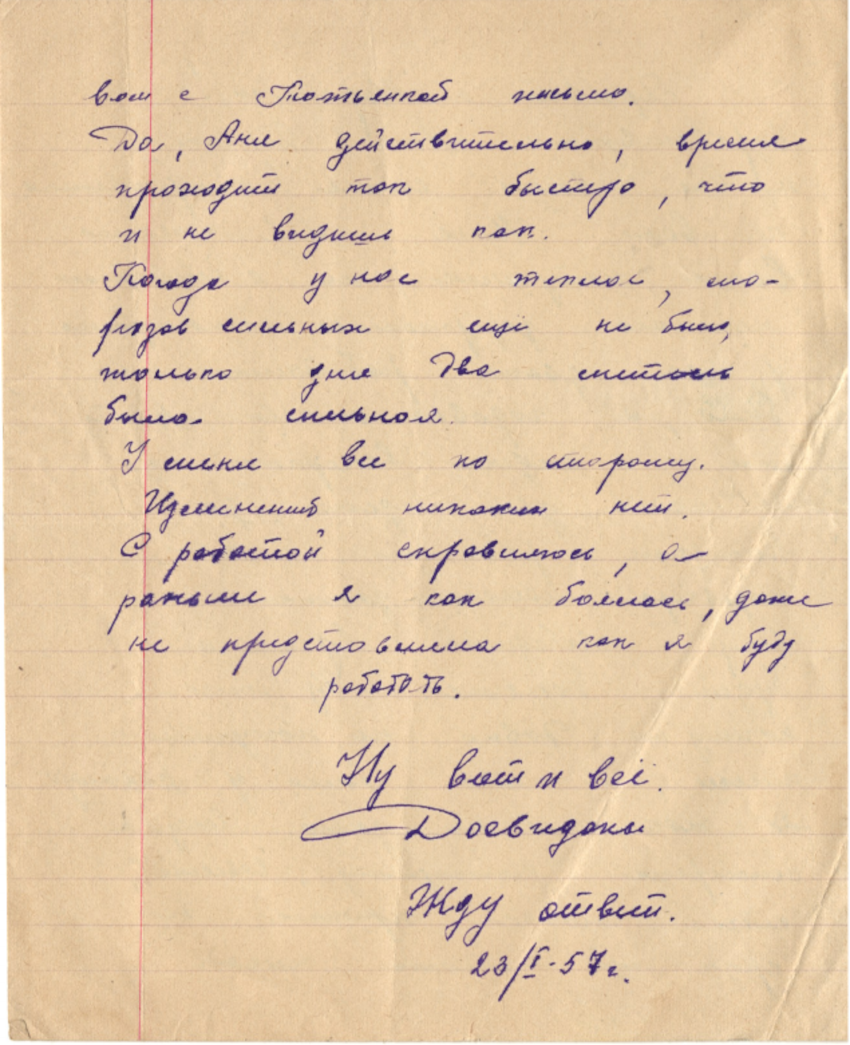 вам с Потылкой письмо.
Да, Аня действительно, время
проходит так быстро, что
и не видишь как.
Погода у нас теплая, мо-
розов сильных еще не было,
только дня два метель
была сильная.
У меня все по старому.
Изменений никаких нет.
С работой справилась, а
раньше я как боялась, даже
не представляла как я буду
работать.
Ну вот и всё.
Досвиданье
Жду ответ.
23/I-57г.